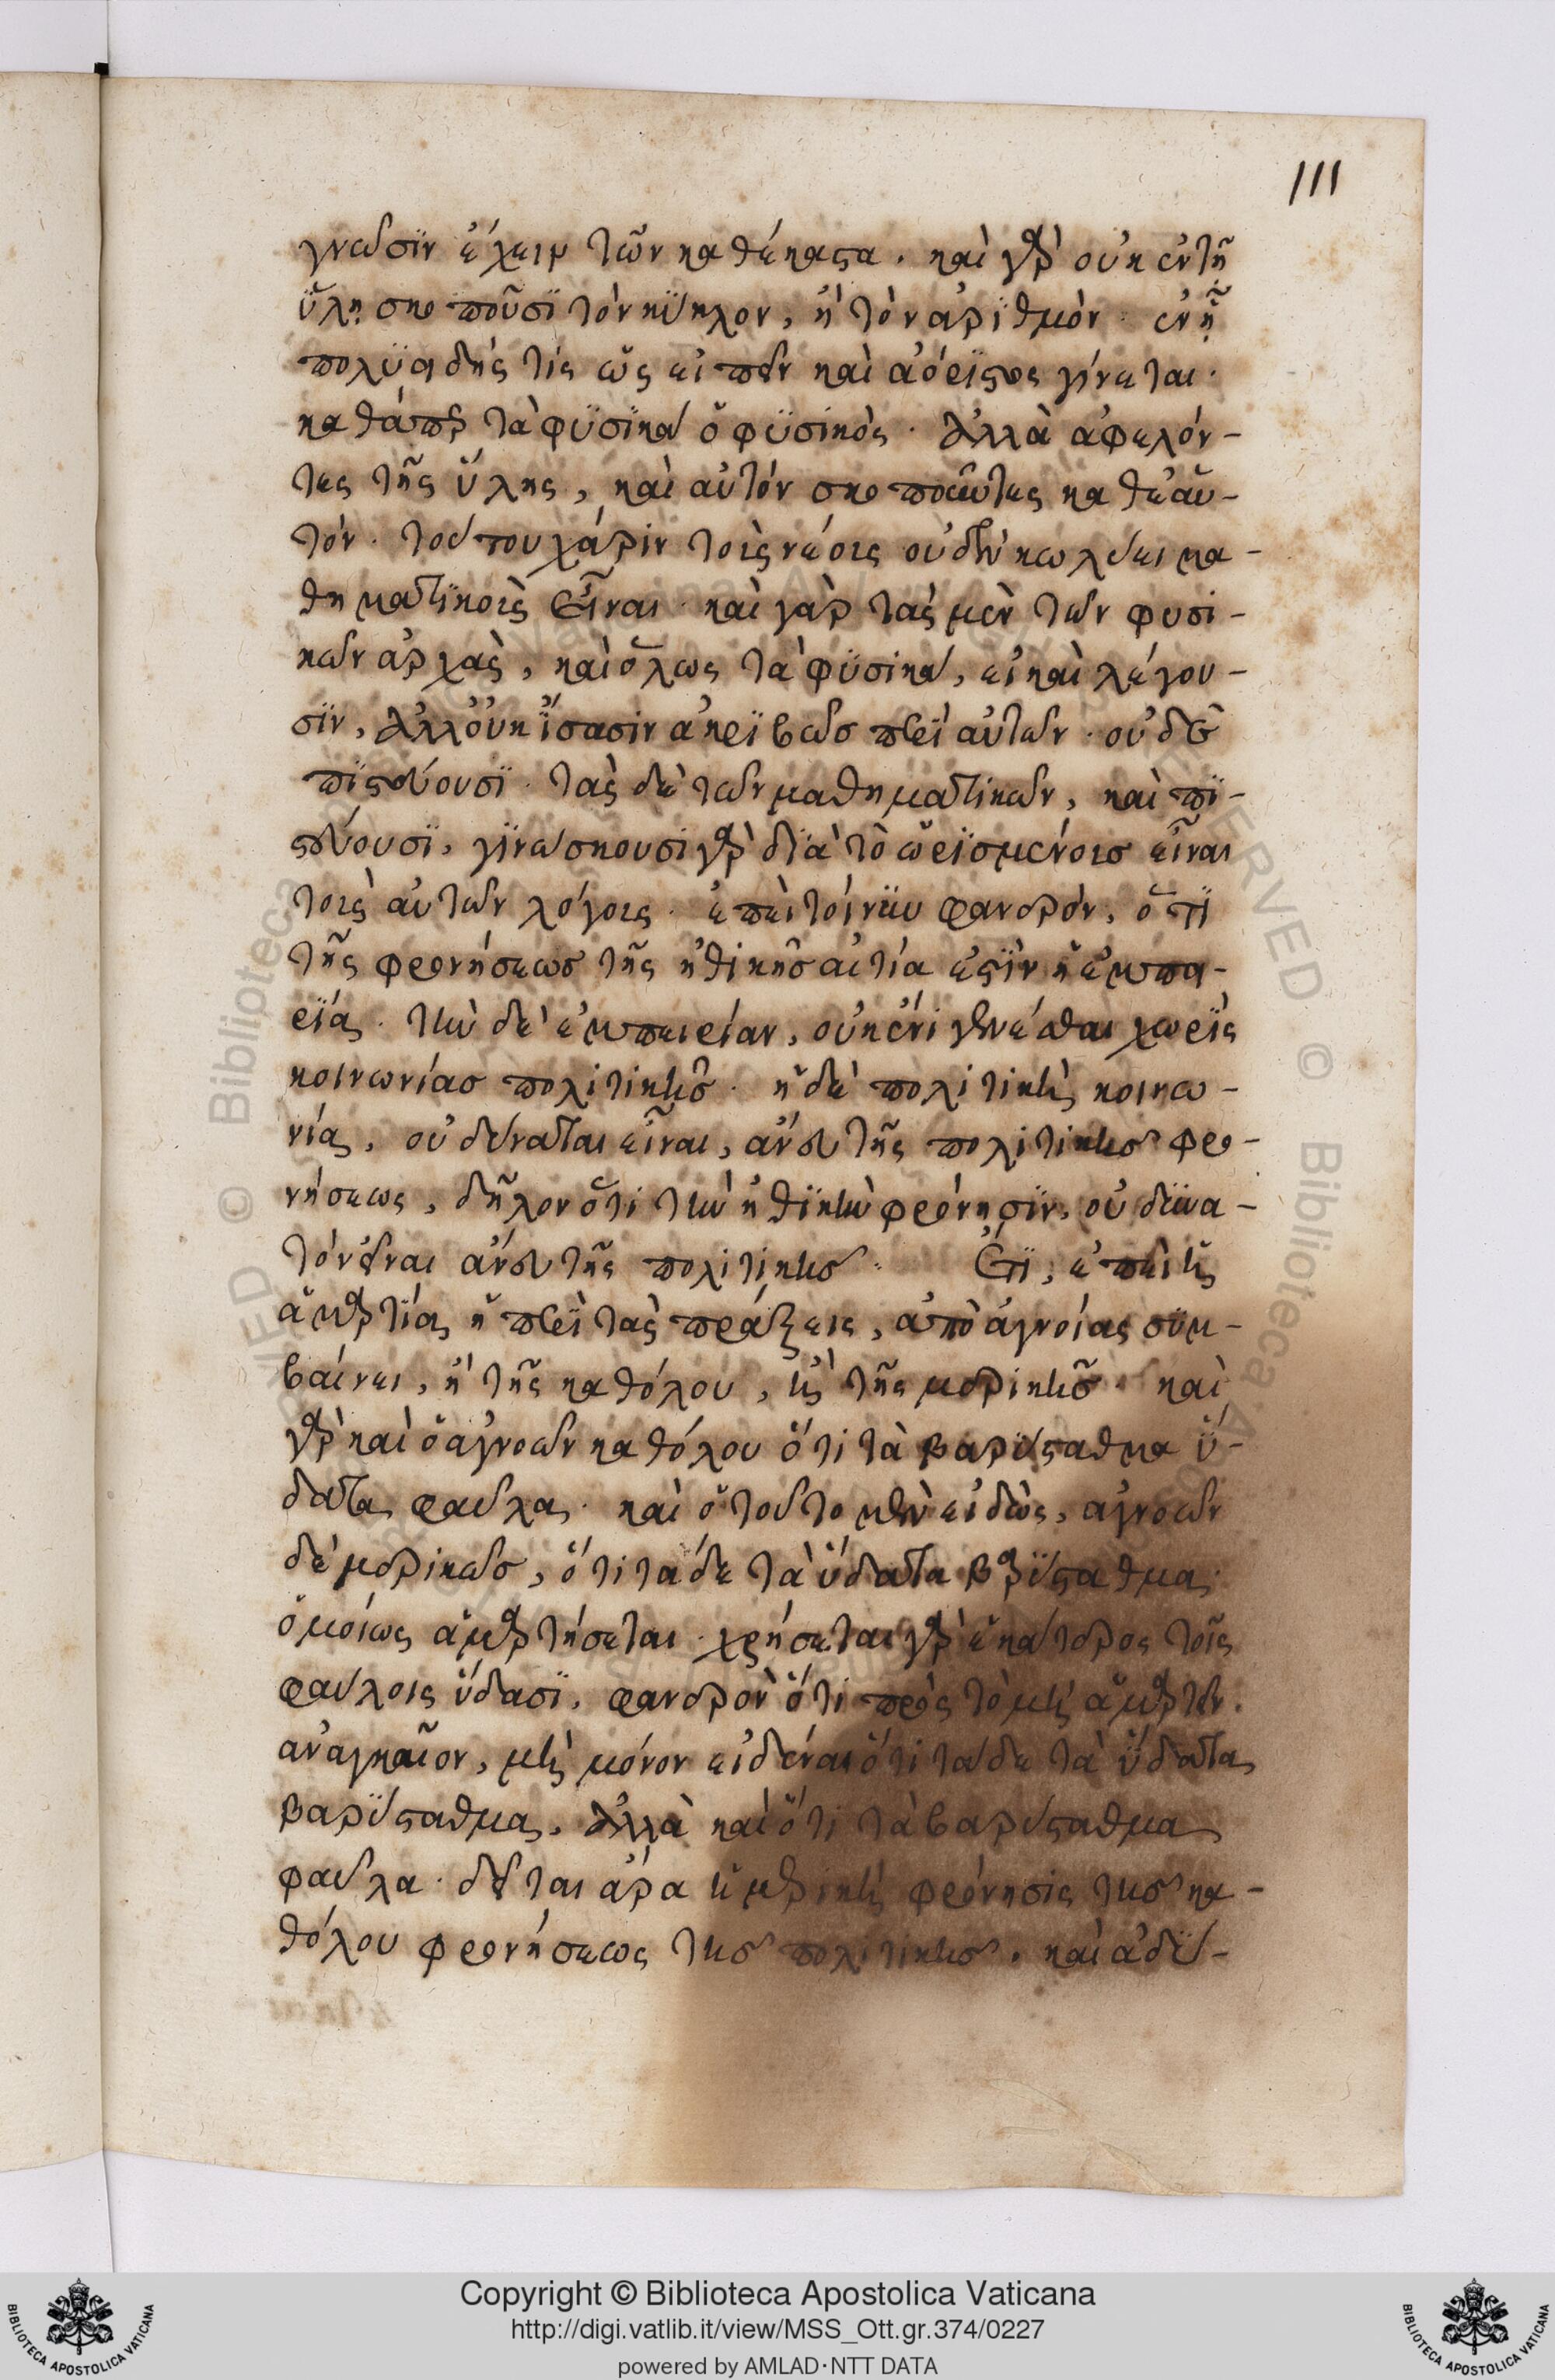 111
γνῶσϊν ἔχειν τῶν καθέκαστα. καὶ γὰρ οὐκ ἐν τῇ
ὕλῃ σκοποῦσϊ τὸν κΰκλον, ἢ τὸν αῤϊθμόν· ἐν ᾗ
πολϋειδής τίς ὡς εἰπεῖν καὶ ἀόρϊστος γίνεται·
καθάπερ τὰ φϋσϊκὰ ὁ φϋσϊκός· ἀλλὰ ἀφελόν-
τες τῆς ὕλης, καὶ αὐτόν σκοποῦντες καθ' ἑαυ-
τόν. τούτου χάρϊν τοῖς νέοις οὐδὲν κωλύει μα-
θηματϊκοῖς εἶναι· καὶ γὰρ τὰς μὲν τῶν φυσι-
κῶν ἀρχὰς, καὶ ὅλως τὰ φϋσϊκὰ, εἰ καὶ λέγου-
σϊν, ἀλλ' οὐκ ἴσασιν ἀκρϊβῶς περϊ αὐτῶν· οὐδὲ
πϊστεύουσϊ· τὰς δὲ τῶν μαθηματϊκῶν, καὶ πϊ-
στεύουσϊ, γϊνώσκουσι γὰρ δϊὰ τὸ ὡρϊσμένοις εἶναι
τοῖς αὐτῶν λόγοις. ἐπεὶ τοίνϋν φανερόν, ὅτϊ
τῆς φρονήσεως τῆς ἠθικῆς αἰτία ἐστϊν ἡ ἐμπει-
ρϊά. τὴν δὲ ἐμπειρίαν, οὐκ ἔνι γενέσθαι χωρϊς
κοινωνίας πολιτικῆς· ἡ δὲ πολιτικὴ κοινω-
νία, οὐ δύναται εἶναι, ἄνευ τῆς πολιτικῆς φρο-
νήσεως, δῆλον ὅτι τὴν ἠθϊκὴν φρόνησϊν, οὐ δϋνα-
τὸν εἶναι ἄνευ τῆς πολιτικῆς· Ἔτϊ, ἐπεὶ ἡ
ἁμαρτία ἡ περϊ τὰς πράξεις, ἀπὸ ἀγνοίας συμ-
βαίνει, ἢ τῆς καθόλου, ἢ τῆς μερικῆς· καὶ
γὰρ καὶ ὁ ἀγνοῶν καθόλου ὅτι τὰ βαρΰσταθμα ὕ-
δατα φαῦλα· καὶ ὁ τοῦτο μὲν εἰδὼς, ἀγνοῶν
δὲ μερικῶς, ὅτι τάδε τὰ ὕδατα βαρΰσταθμα·
ὁμοίως ἁμαρτήσεται· χρήσεται γὰρ ἑκάτερος τοῖς
φαύλοις ὕδασϊ, φανερὸν ὅτι πρὸς τὸ μὴ ἁμαρτεῖν.
ἀναγκαῖον, μὴ μόνον εἰδέναι ὅτι τάδε τὰ ὕδατα
βαρΰσταθμα, ἀλλὰ καὶ ὅτι τὰ βαρύσταθμα
φαῦλα· δεῖται ἄρα ἡ μερικὴ φρόνησις τῆς κα-
θόλου φρονήσεως τῆς πολιτικῆς, καὶ ἀδΰ-
Copyright © Biblioteca Apostolica Vaticana
http://digi.vatlib.it/view/MSS_Ott.gr.374/0227
powered by AMLAD·NTT DATA